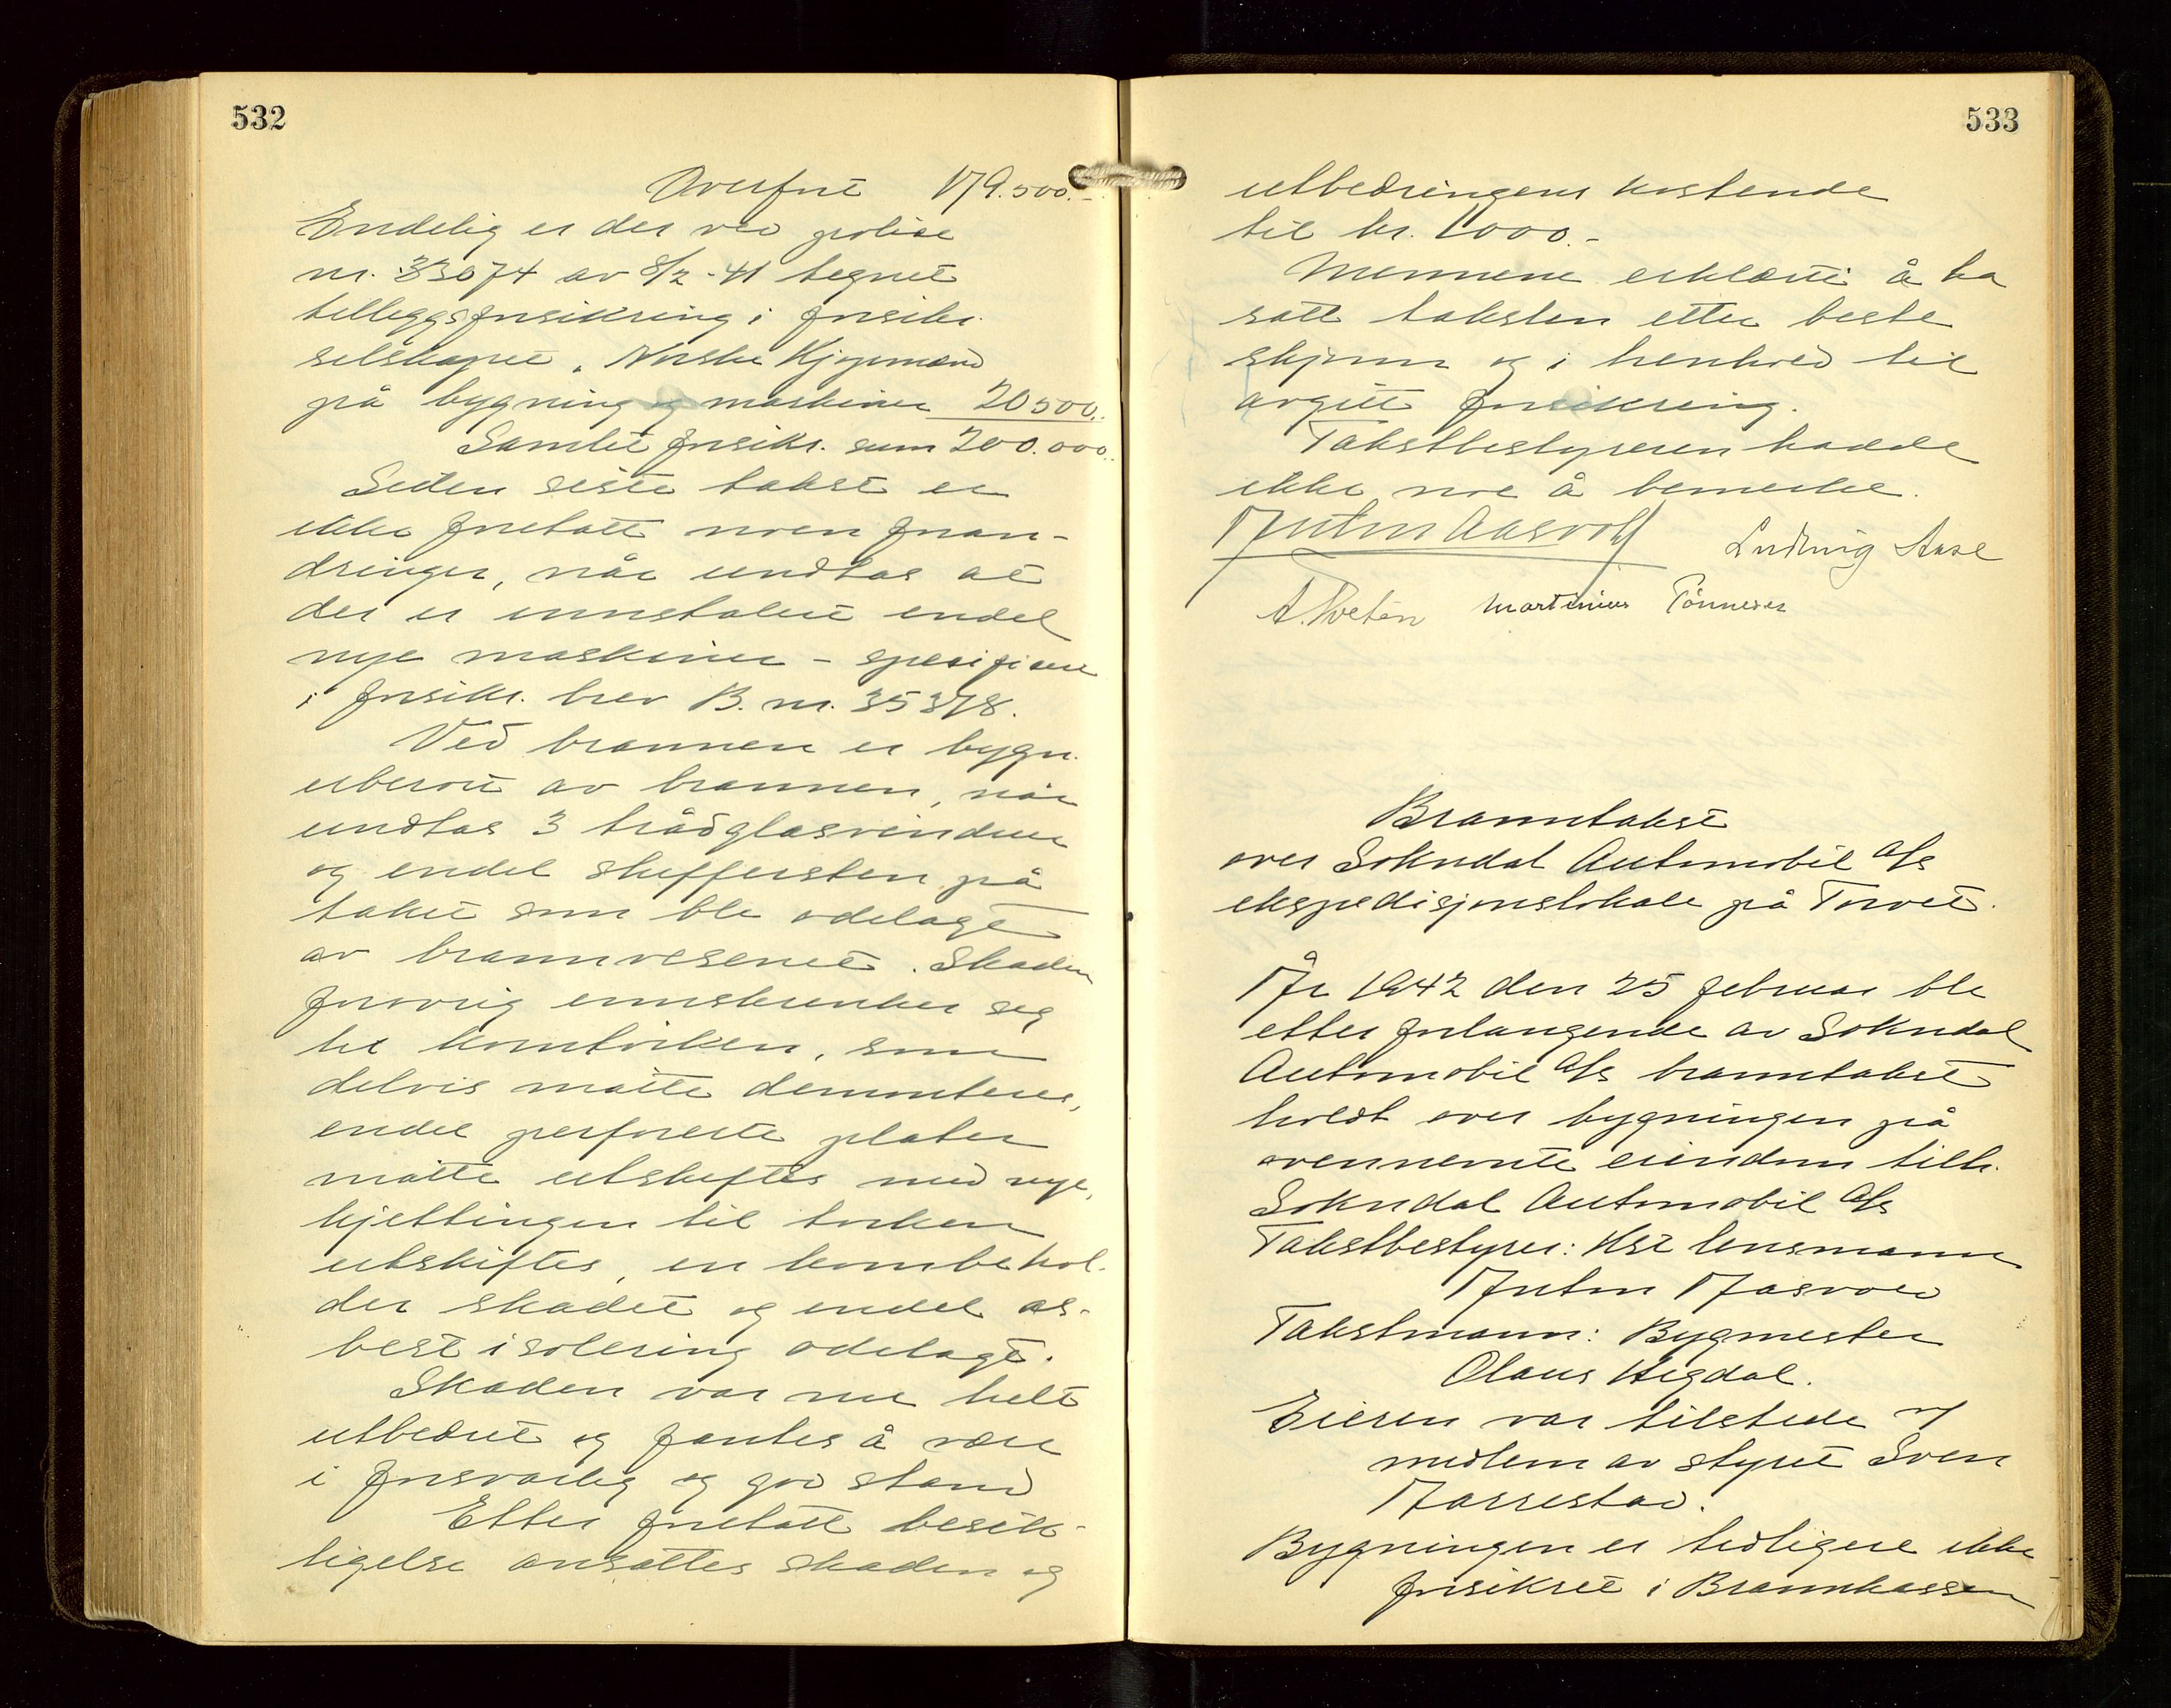 532
Overført 179.500.-
Endelig er der ved polise
nr. 33074 av 8/2-41 tegnet
tilleggsforsikring i forsikr.
selskapet "Norske Kjøpmænd
på bygning og maskiner 20500.-
Samlet forsikr. sum 200.000.-
Siden siste takst er
ikke foretatt noen foran-
dringer, når undtas at
der er innstalert endel
nye maskiner - spesifisert
i forsikr. brev B. nr. 35378.
Ved brannen er bygn.
uberørt av brannen, når
undtas 3 trådglasvinduer
og endel skiffersten på
taket som ble ødelagt
av brannvesenet. Skaden
forøvrig innskrenker seg
til korntørken, som
delvis måtte demonteres,
endel perforerte plater
måtte utskiftes med nye,
kjettingen til tørken
utskiftes, en kornbehol-
der skadet og endel as-
best isolering ødelagt.
Skaden var nu helt
utbedret og fantes å være
i forsvarlig og god stand
Etter foretatt besik-
tigelse ansattes skaden og
533
utbedringens kostende
til kr. 1000.-
Mennene erklærte å ha
satt taksten etter beste
skjønn og i henhold til
avgitt forsikring.
Takstbestyreren hadde
ikke noe å bemerke.
Anton Aasvold Ludvig Aase
A. Tveten Martinius Tönnesen
Branntakst
over Sokndal Automobil A/s
ekspedisjonslokale på Torvet.
År 1942 den 25 februar ble
etter forlangende av Sokndal
Automobil A/s branntakst
holdt over bygningen på
ovennevnte eiendom tilh.
Sokndal Automobil A/s
Takstbestyrer: Kst lensmann
Anton Aasvold
Takstmann: Bygmester
Olaus Hegdal.
Eieren var tilstede v/
medlem av styret Sven
Aarrestad.
Bygningen er tidligere ikke
forsikret i Brannkassen